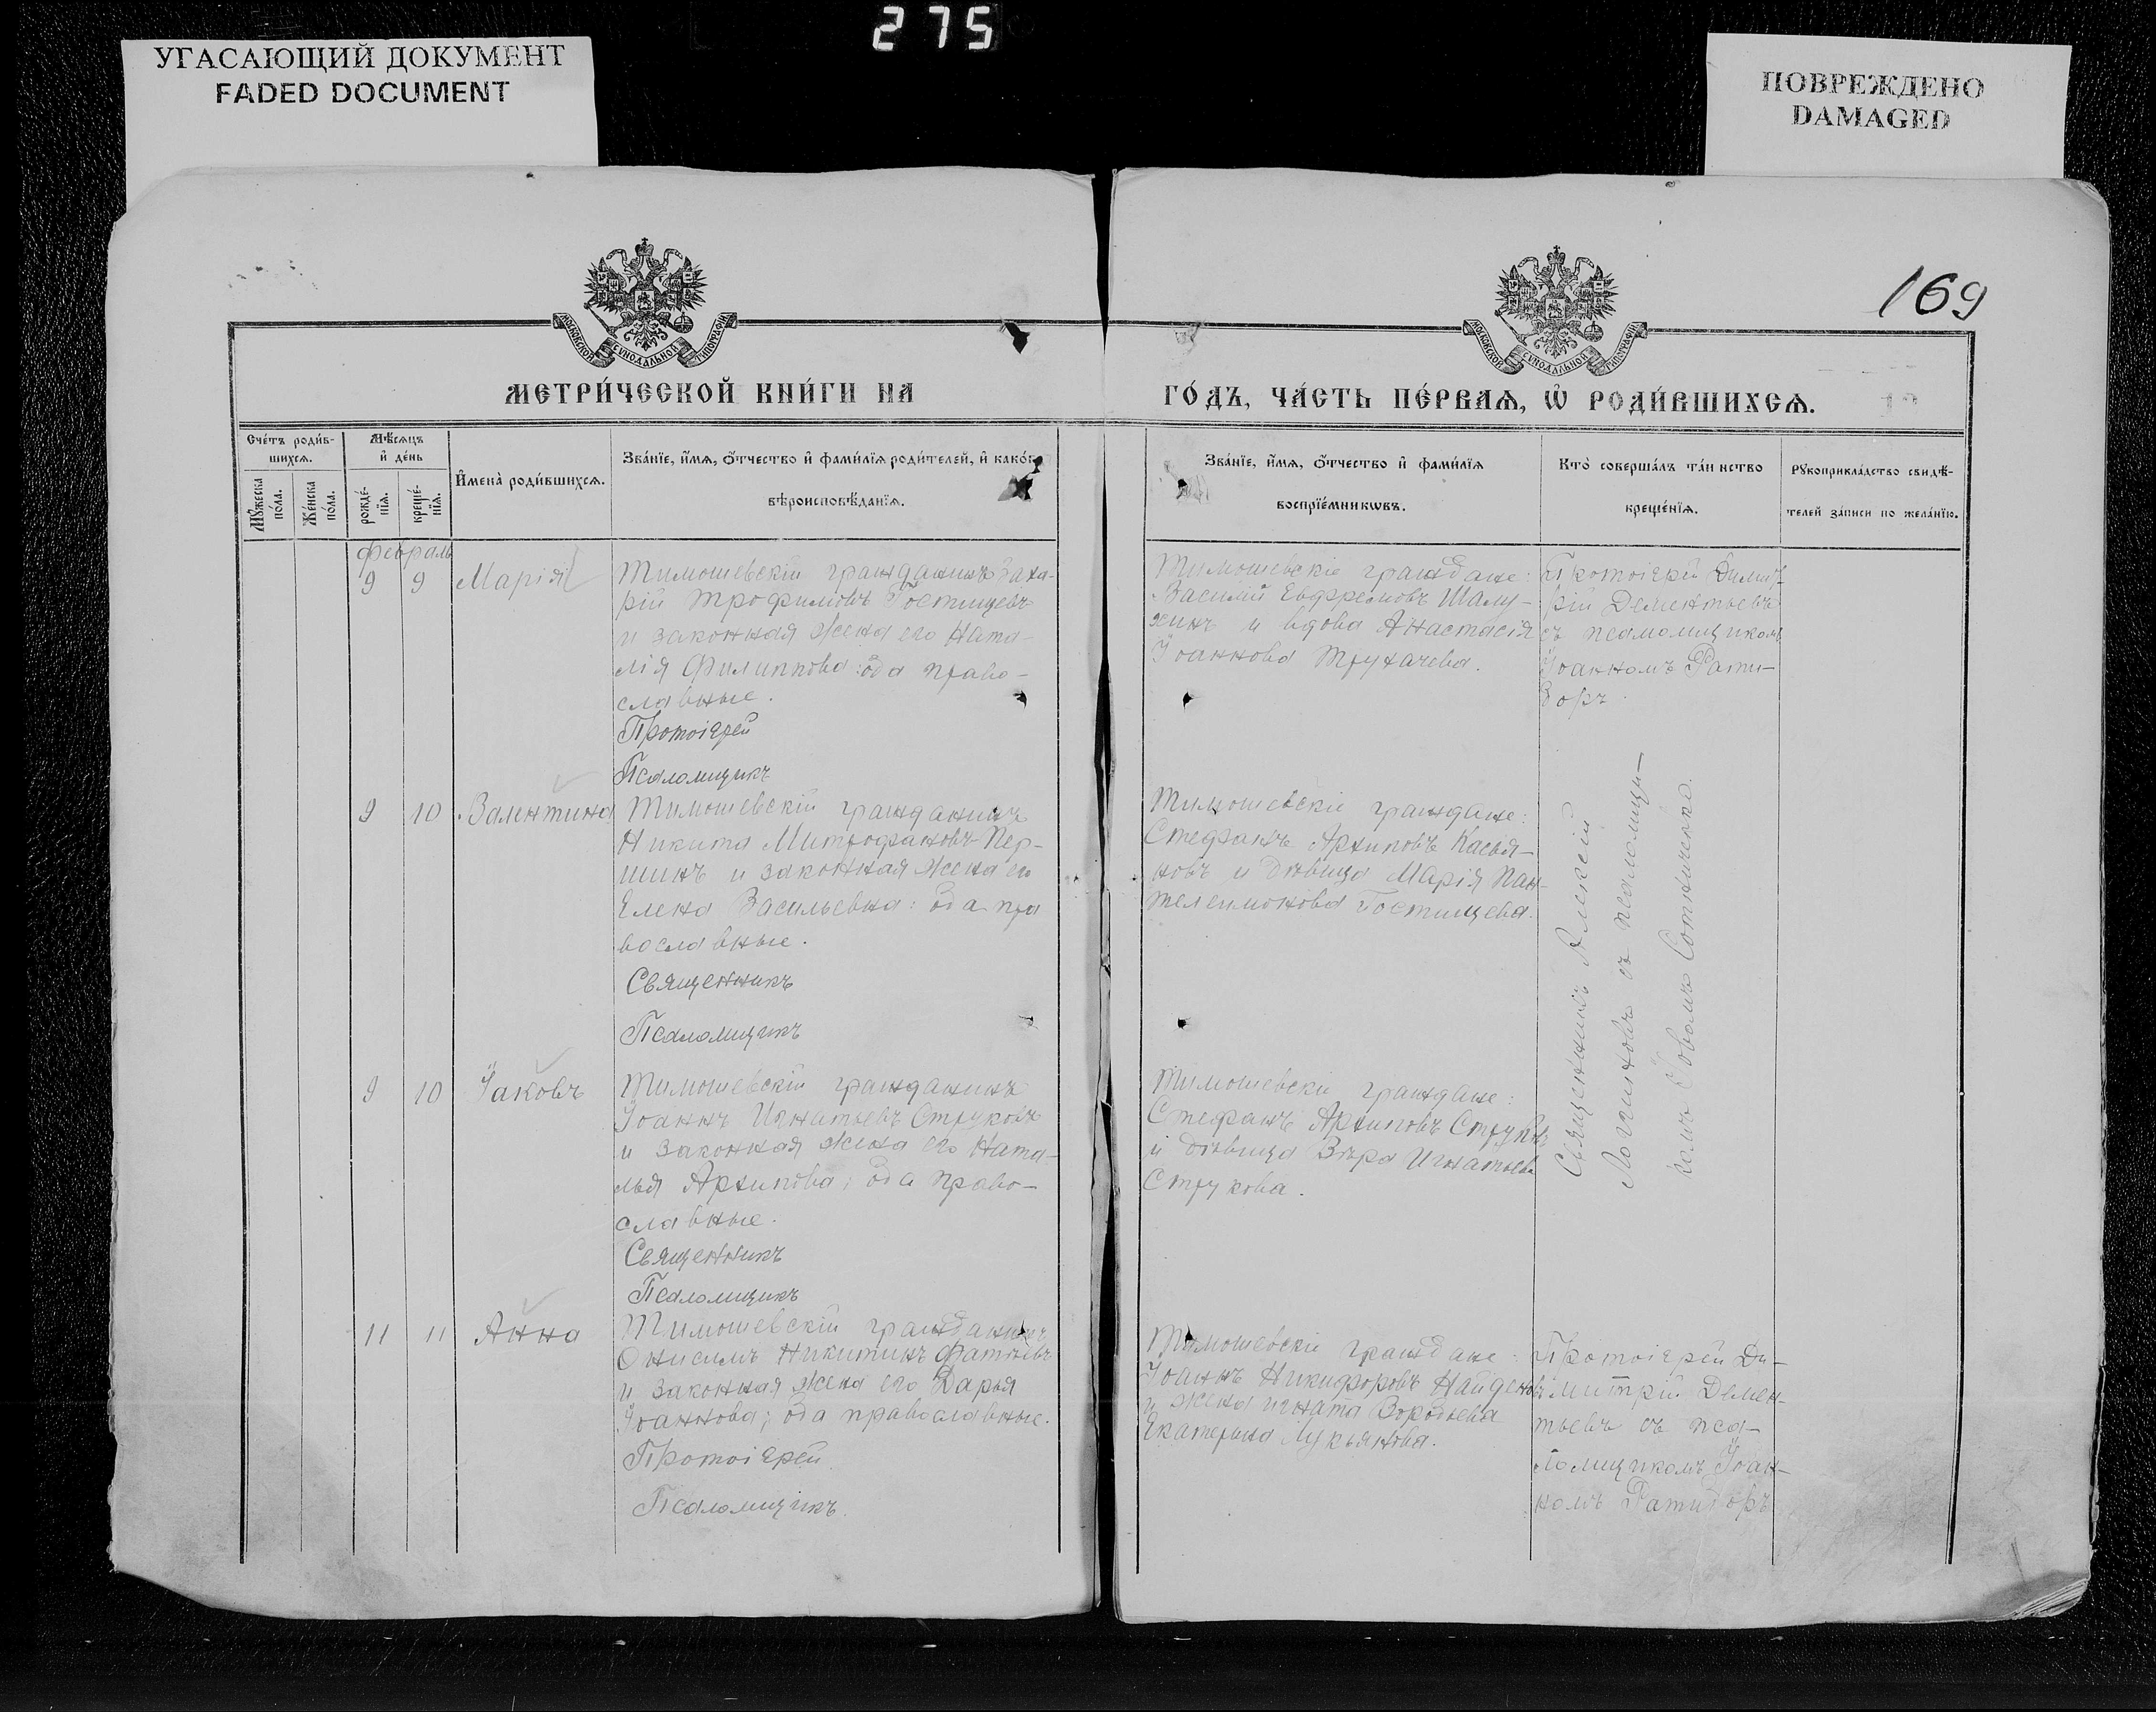 275
УГАСАЮЩИЙ ДОКУМЕНТ
FADED DOCUMENT
ПОВРЕЖДЕНО
DAMAGED
169
МОСКОВСКОЙ СѴНОДАЛЬНОЙ ТИПОГРАФІИ
МОСКОВСКОЙ СѴНОДАЛЬНОЙ ТИПОГРАФІИ
МЕТРИ́ЧЕСКОЙ КНИ́ГИ НА
ГО́ДЪ, ЧА́СТЬ ПЕ́РВАѦ, Ѡ҆ РОДИ́ВШИХСѦ.
Сче́тъ роди́в-
шихсѧ.
Мꙋ́жеска по́ла.
Же́нска по́ла.
Мѣ́сѧцъ
и҆ де́нь
рожде́-
нїѧ.
креще́-
нїѧ.
И҆мена̀ роди́вшихсѧ.
Зва́нїе, и҆́мѧ, ѻ҆́тчество и҆ фамѝлїѧ роди́телей, и҆ како́гѡ
вѣроисповѣ́данїѧ.
Зва́нїе, и҆́мѧ, ѻ҆́тчество и҆ фами́лїѧ
воспрїе́мникѡвъ.
Кто̀ соверша́лъ та́инство
креще́нїѧ.
Рꙋкоприкла́дство свидѣ́-
телей за́писи по жела́нїю.
Февраль
9 9 Марія
Тимошевскій гражданинъ Заха-
рій Трофимовъ Гостищевъ
и законная жена его Ната-
лія Филиппова: оба право-
славные.
Протоіерей
Псаломщикъ
Тимошевскіе граждане:
Василій Евфремовъ Шалу-
хинъ и вдова Анастасія
Іоаннова Трухачева.
Протоіерей Димит-
рій Дементьевъ
съ псаломщикомъ
Іоанномъ Рати-
боръ.
9 10 Валентина
Тимошевскій гражданинъ
Никита Митрофановъ Пер-
шинъ и законная жена его
Елена Васильевна: оба пра
вославные.
Священникъ
Псаломщикъ
Тимошевскіе граждане:
Стефанъ Архиповъ Касья-
новъ и дѣвица Марія Пан-
телеимонова Гостищева.
Священникъ Алексій
Логиновъ съ псаломщи-
комъ Іовомъ Сотниченко.
9 10 Іаковъ
Тимошевскій гражданинъ
Іоаннъ Игнатьевъ Струковъ
и законная жена его Ната-
лья Архипова; оба право-
славные.
Священникъ
Псаломщикъ
Тимошевскіе граждане:
Стефанъ Архиповъ Струковъ
и дѣвица Вѣра Игнатьева
Струкова.
11 11 Анна
Тимошевскій гражданинъ
Онисимъ Никитинъ Фатѣевъ
и законная жена его Дарья
Іоаннова; оба православные.
Протоіерей
Псаломщикъ
Тимошевскіе граждане:
Іоаннъ Никифоровъ Найденовъ
и жена Игната Воробьева
Екатерина Лукьянова.
Протоіерей Ди-
митрій Демен-
тьевъ съ пса-
ломщикомъ Іоан-
номъ Ратиборъ